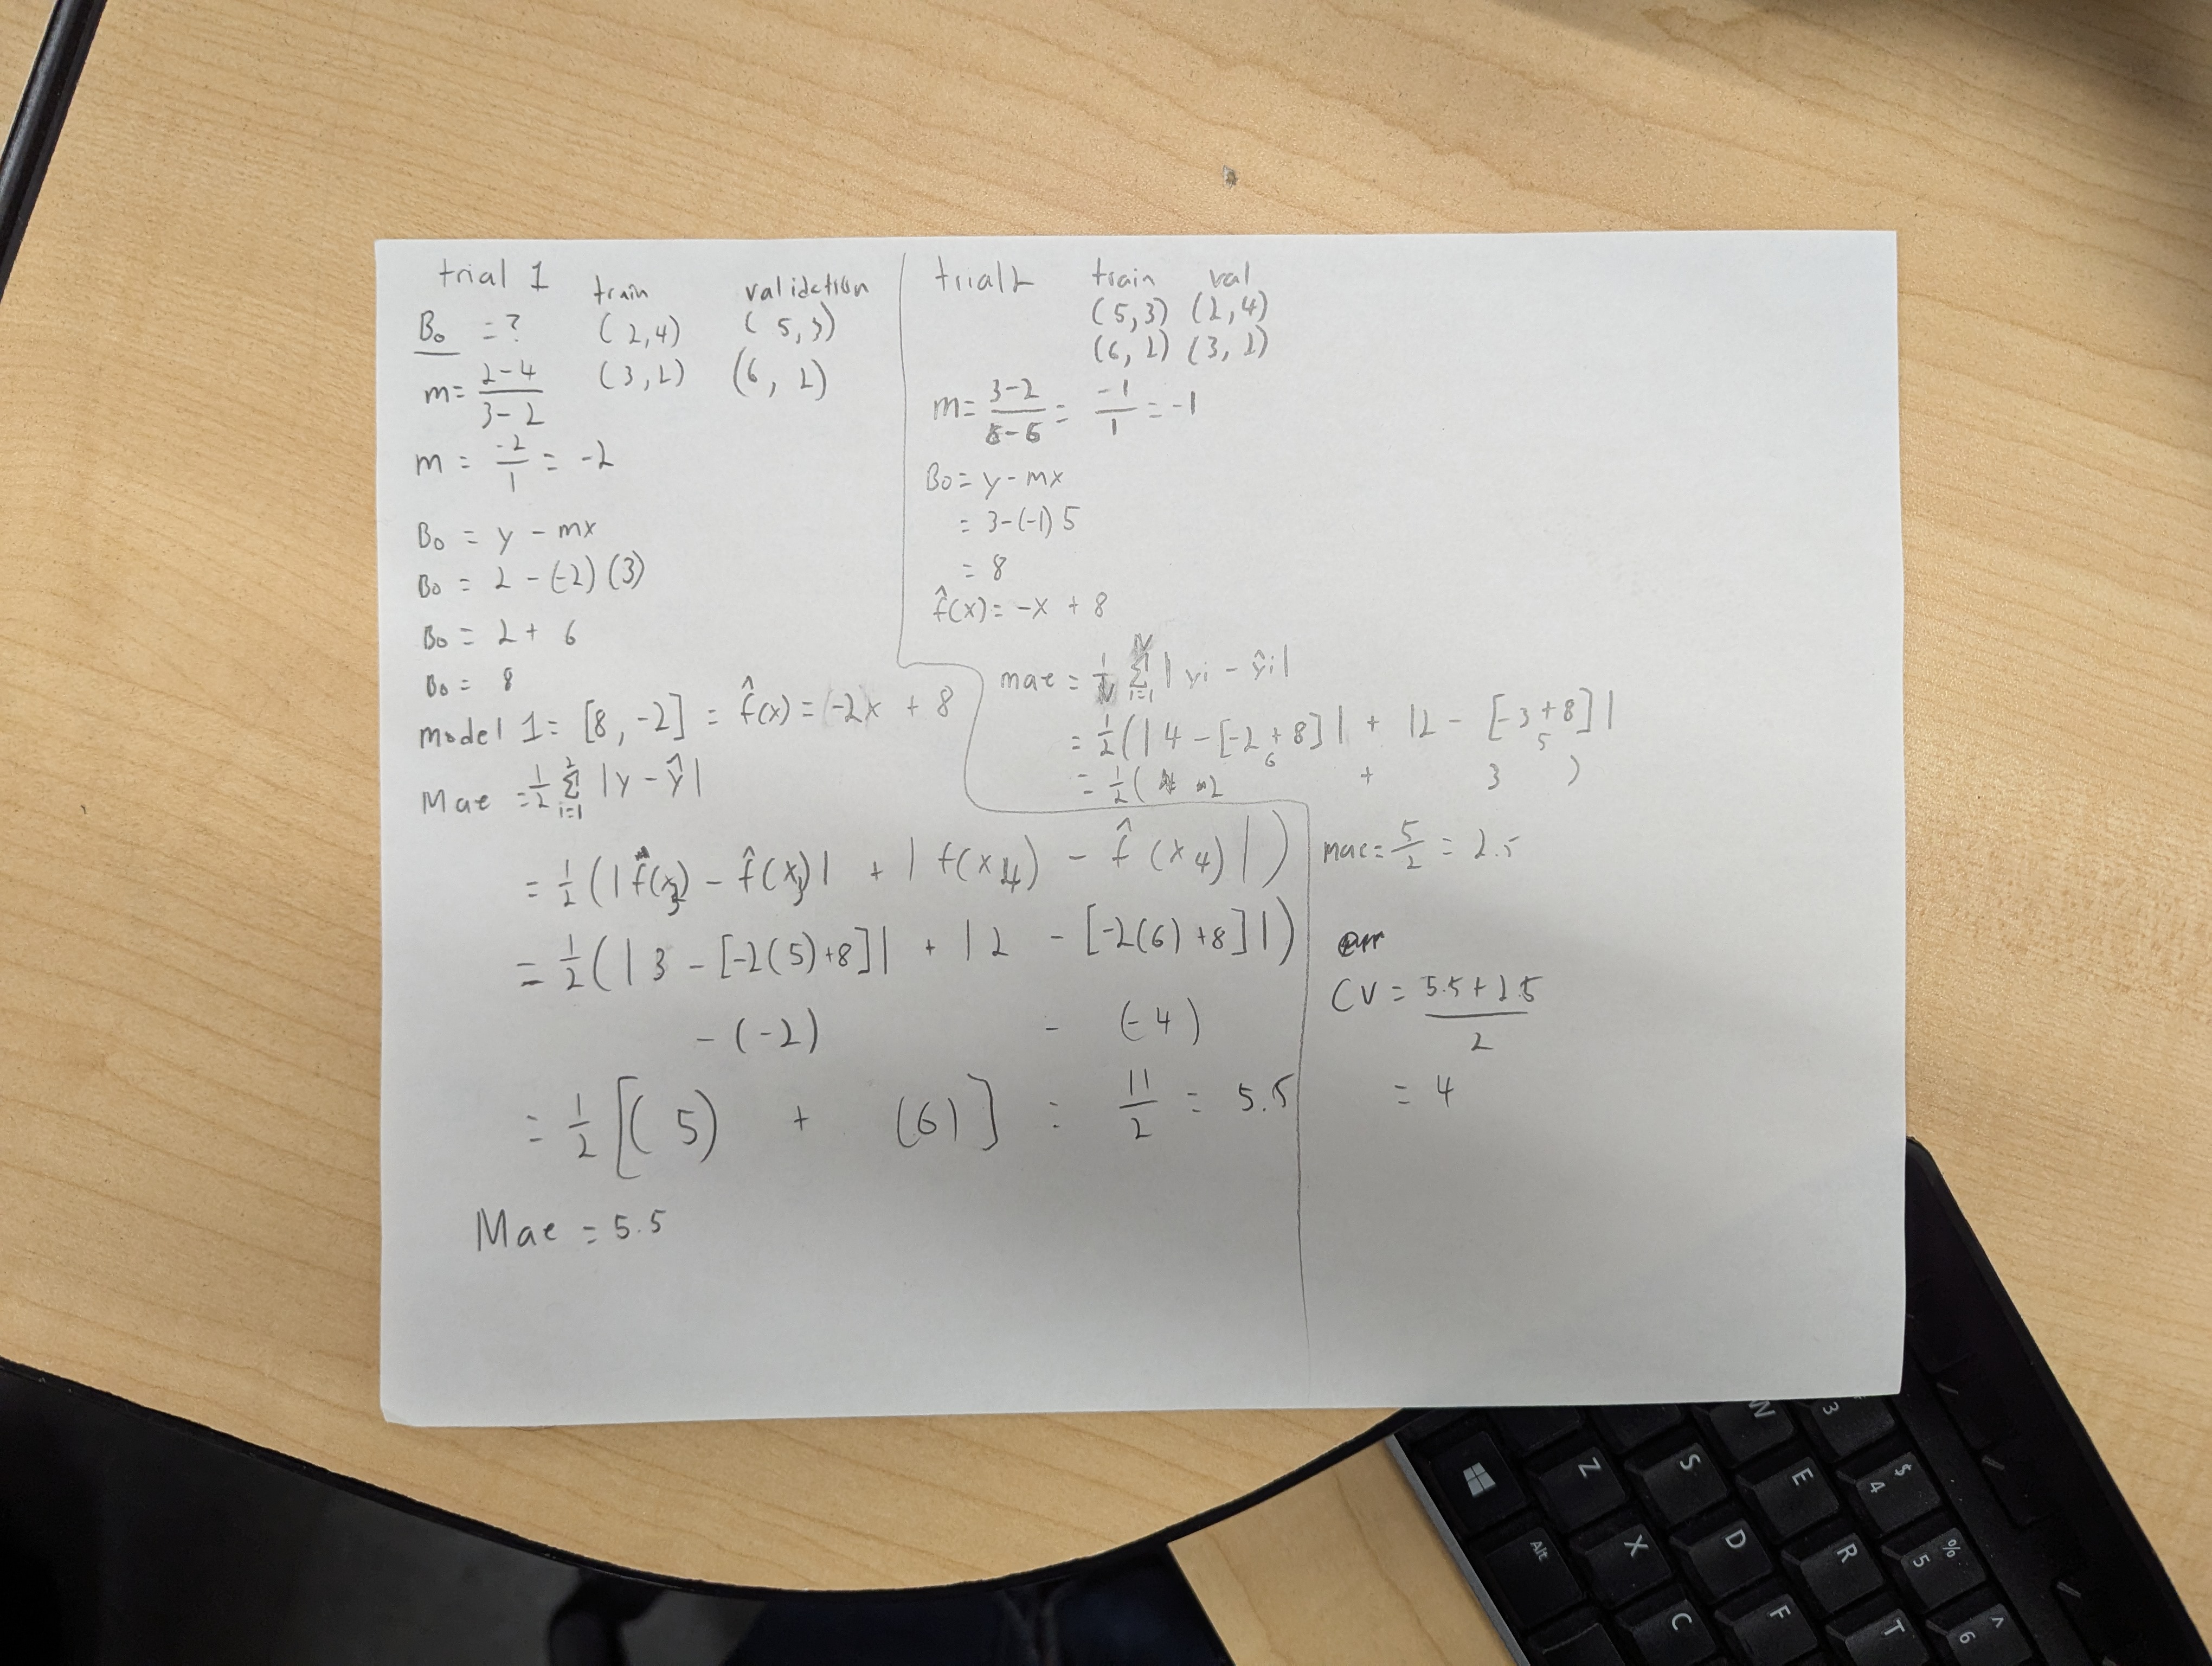 trial 1 train validation
B₀ = ? (2,4) (5,3)
m = 2-4 / 3-2 (3,2) (6, 2)
m = -2/1 = -2
B₀ = y - mx
B₀ = 2 - (-2)(3)
B₀ = 2 + 6
B₀ = 8
model 1 = [8, -2] = f̂(x) = -2x + 8
Mae = 1/2 Σ i=1 2 |y - ŷ|
= 1/2 (|f(x₃) - f̂(x₃)| + |f(x₄) - f̂(x₄)|)
= 1/2 (|3 - [-2(5)+8]| + |2 - [-2(6)+8]|)
- (-2) - (-4)
= 1/2 [(5) + (6)] = 11/2 = 5.5
Mae = 5.5
trial 2 train val
(5,3) (2,4)
(6,2) (3,2)
m = 3-2 / 5-6 = -1/1 = -1
B₀ = y - mx
= 3-(-1)5
= 8
f̂(x) = -x + 8
mae = 1/N Σ i=1 N |yi - ŷi|
= 1/2 (|4 - [-2+8]| + |2 - [-3+8]|
6 5
= 1/2 ( 2 + 3 )
mae = 5/2 = 2.5
err
CV = 5.5+2.5 / 2
= 4
Z
S
W
3
X
D
E
$ 4
Alt
C
F
R
% 5
T
^ 6